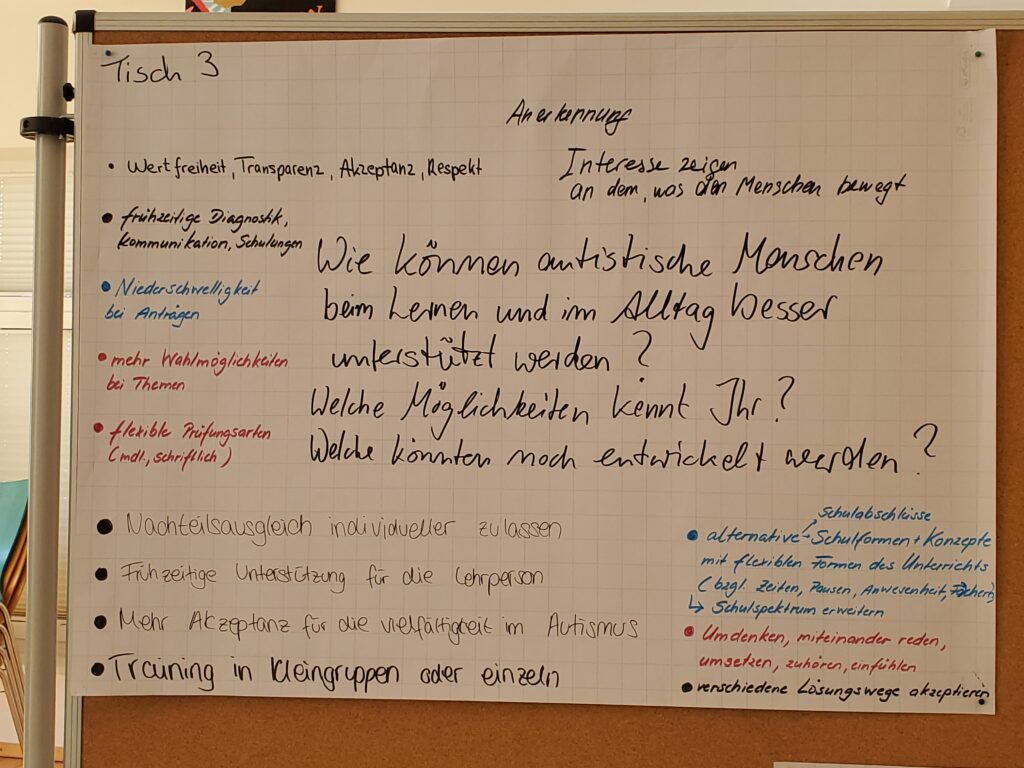 Tisch 3
Anerkennung
• Wertfreiheit, Transparenz, Akzeptanz, Respekt
Interesse zeigen
an dem, was den Menschen bewegt
• frühzeitige Diagnostik,
Kommunikation, Schulungen
• Niederschwelligkeit
bei Anträgen
• mehr Wahlmöglichkeiten
bei Themen
• flexible Prüfungsarten
(mdl., schriftlich)
Wie können autistische Menschen
beim Lernen und im Alltag besser
unterstützt werden?
Welche Möglichkeiten kennt Ihr?
Welche könnten noch entwickelt werden?
• Nachteilsausgleich individueller zulassen
• Frühzeitige Unterstützung für die Lehrperson
• Mehr Akzeptanz für die vielfältigkeit im Autismus
• Training in Kleingruppen oder einzeln
Schulabschlüsse
• alternative Schulformen + Konzepte
mit flexiblen Formen des Unterrichts
(bzgl. Zeiten, Pausen, Anwesenheit, Fächern)
↳ Schulspektrum erweitern
• Umdenken, miteinander reden,
umsetzen, zuhören, einfühlen
• verschiedene Lösungswege akzeptieren